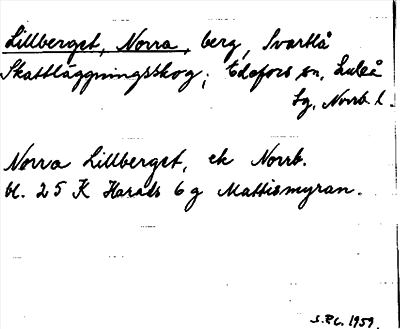 Lillberget, Norra, berg, Svartlå
Skattläggningsskog; Edefors sn, Luleå
lg, Norrb. l.
Norra Lillberget, ek Norrb.
bl. 25 K Harads 6 g Mattismyran.
1959.